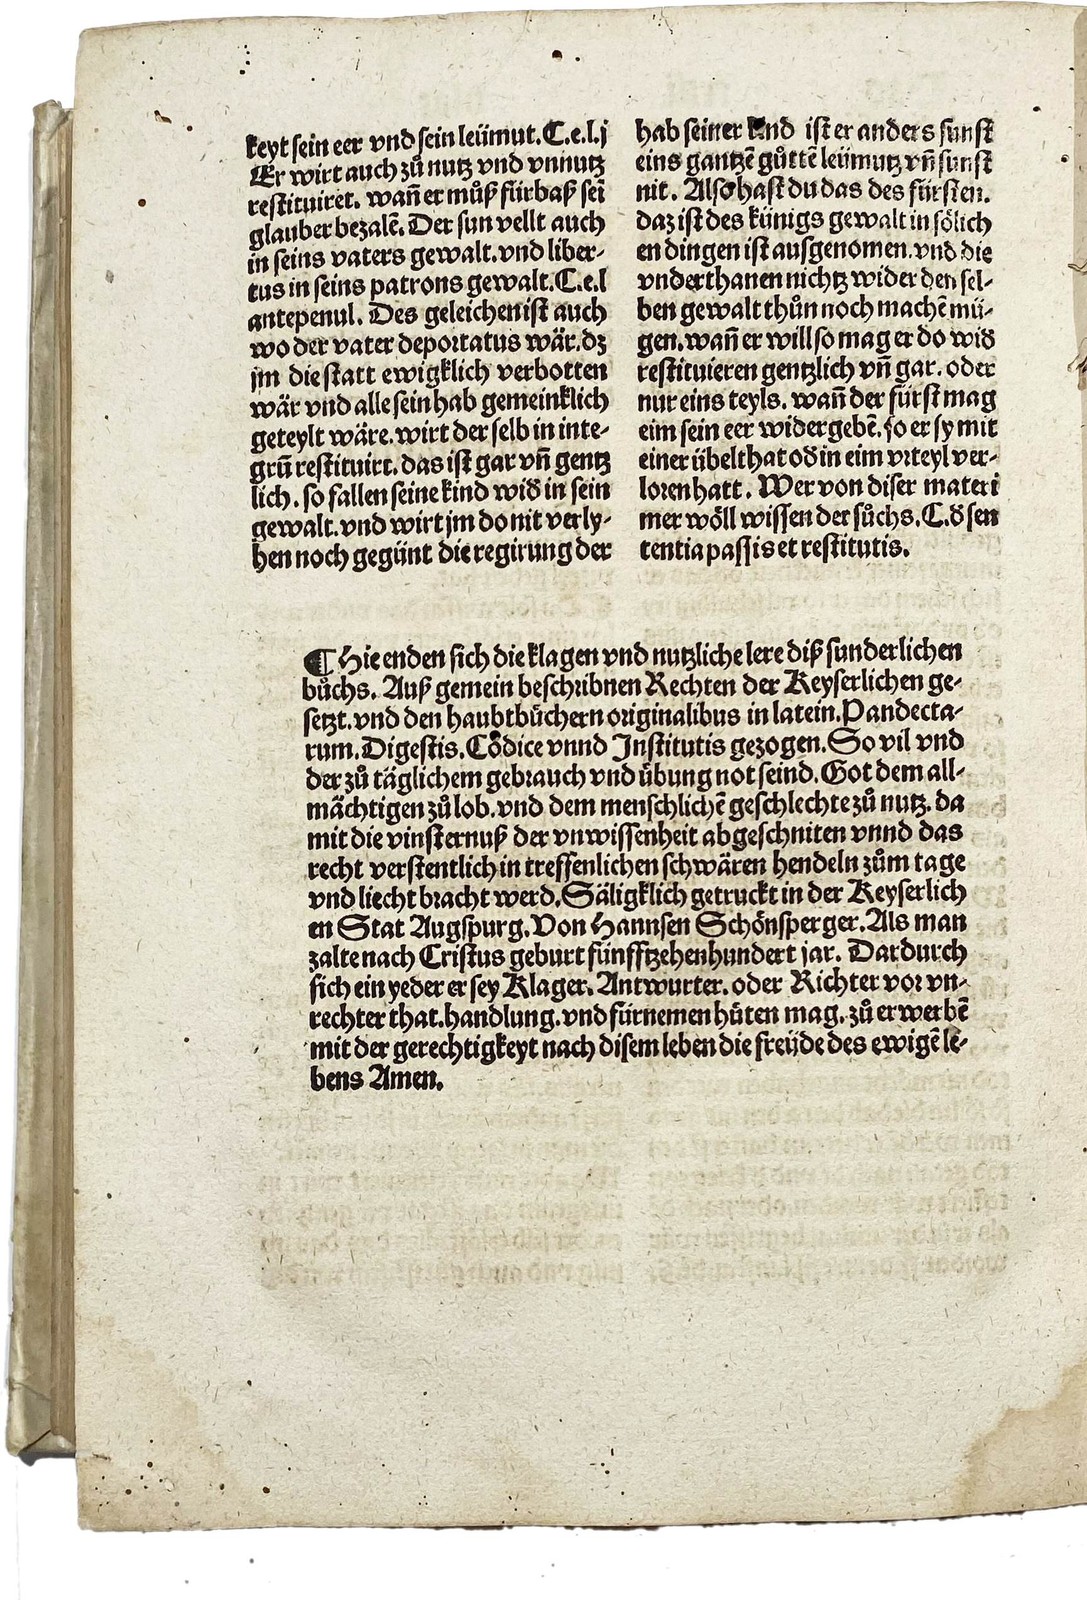 keyt sein eer vnd sein leümut. C.e.l.j
Er wirt auch zů nutz vnd vnnutz
restituiret. wañ er můß fürbaß sei
glauber bezalē. Der sun vellt auch
in seins vaters gewalt. vnd liber-
tus in seins patrons gewalt. C.e.l
antepenul. Des geleichen ist auch
wo der vater deportatus wär. dz
jm die statt ewigklich verbotten
wär vnd alle sein hab gemeinklich
geteylt wäre. wirt der selb in inte-
grū restituirt. das ist gar vñ gentz
lich. so fallen seine kind wiđ in sein
gewalt. vnd wirt jm do nit verly-
hen noch gegünt die regirung der
hab seiner kind ist er anders sunst
eins gantzē gůttē leümutz vñ sunst
nit. Also hast du das des fürsten.
daz ist des künigs gewalt in sölich
en dingen ist ausgenomen. vnd die
vnderthanen nichtz wider den sel-
ben gewalt thůn noch machē mü-
gen. wañ er will so mag er do wiđ
restituieren gentzlich vñ gar. oder
nur eins teyls. wañ der fürst mag
eim sein eer widergebē. so er sy mit
einer übelthat ođ in eim vrteyl ver-
loren hatt. Wer von diser materi
mer wöll wissen der sůchs. C. đ sen
tentia passis et restitutis.
¶ Hie enden sich die klagen vnd nutzliche lere diß sunderlichen
bůchs. Auß gemein beschribnen Rechten der Keyserlichen ge-
setzt. vnd den haubtbüchern originalibus in latein. Pandecta-
rum. Digestis. Codice vnnd Institutis gezogen. So vil vnd
der zů täglichem gebrauch vnd übung not seind. Got dem all-
mächtigen zů lob. vnd dem menschlichē geschlechte zů nutz. da
mit die vinsternuß der vnwissenheit abgeschniten vnnd das
recht verstentlich in treffenlichen schwären hendeln zům tage
vnd liecht bracht werd. Säligklich getruckt in der Keyserlich
en Stat Augspurg. Von Hannsen Schönsperger. Als man
zalte nach Cristus geburt fünfftzehenhundert jar. Dardurch
sich ein yeder er sey Klager. Antwurter. oder Richter vor vn-
rechter that. handlung. vnd fürnemen hüten mag. zů erwerbē
mit der gerechtigkeyt nach disem leben die freüde des ewigē le-
bens Amen.